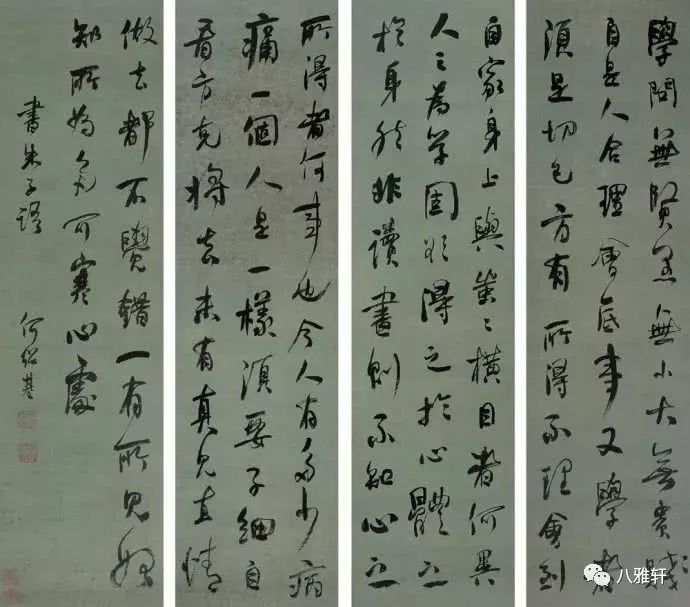 學問無賢愚無小大無貴賤
自是人合理會底事又學者
須是切己方有所得不理會到
自家身上與蚩〻橫目者何異
人之為學固欲得之於心體之
於身然非讀書則不知心之
所得者何事也今人有多少病
痛一個人是一樣須要子細自
看方克將去未有真見直情
做去都不覺錯一有所見始
知所為多可寒心處
書朱子語
何紹基
八雅轩